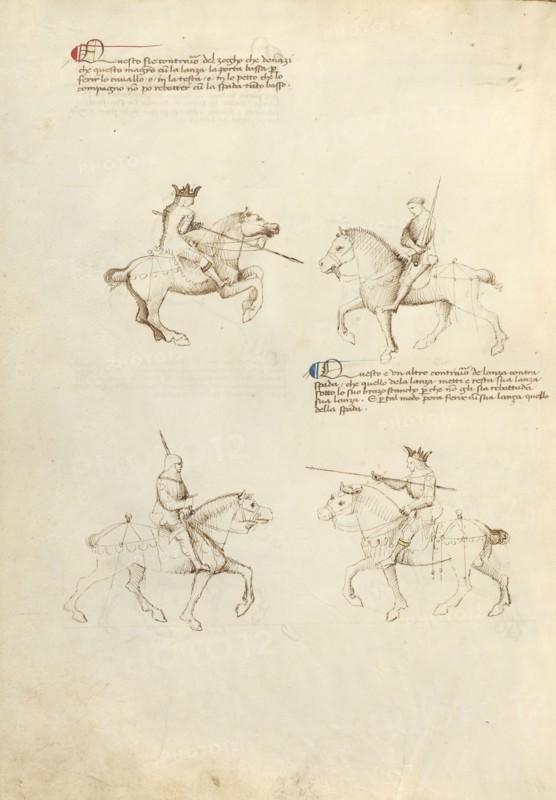 Questo sie contrario del zogho che denazi
che questo magistro cu la lanza la porta bassa p
ferir lo cavallo o in la testa o in lo petto che lo
compagno no po rebatter cu la spada tanto basso.
Questo e un altro contrario de lanza contra
spada, che quello dela lanza metti e resta sua lanza
sotto lo suo brazo stancho p che no gli sia rebattuda
sua lanza. E p tal modo pora ferir cu sua lanza quello
della spada.
PHOTO12
PHOTO12